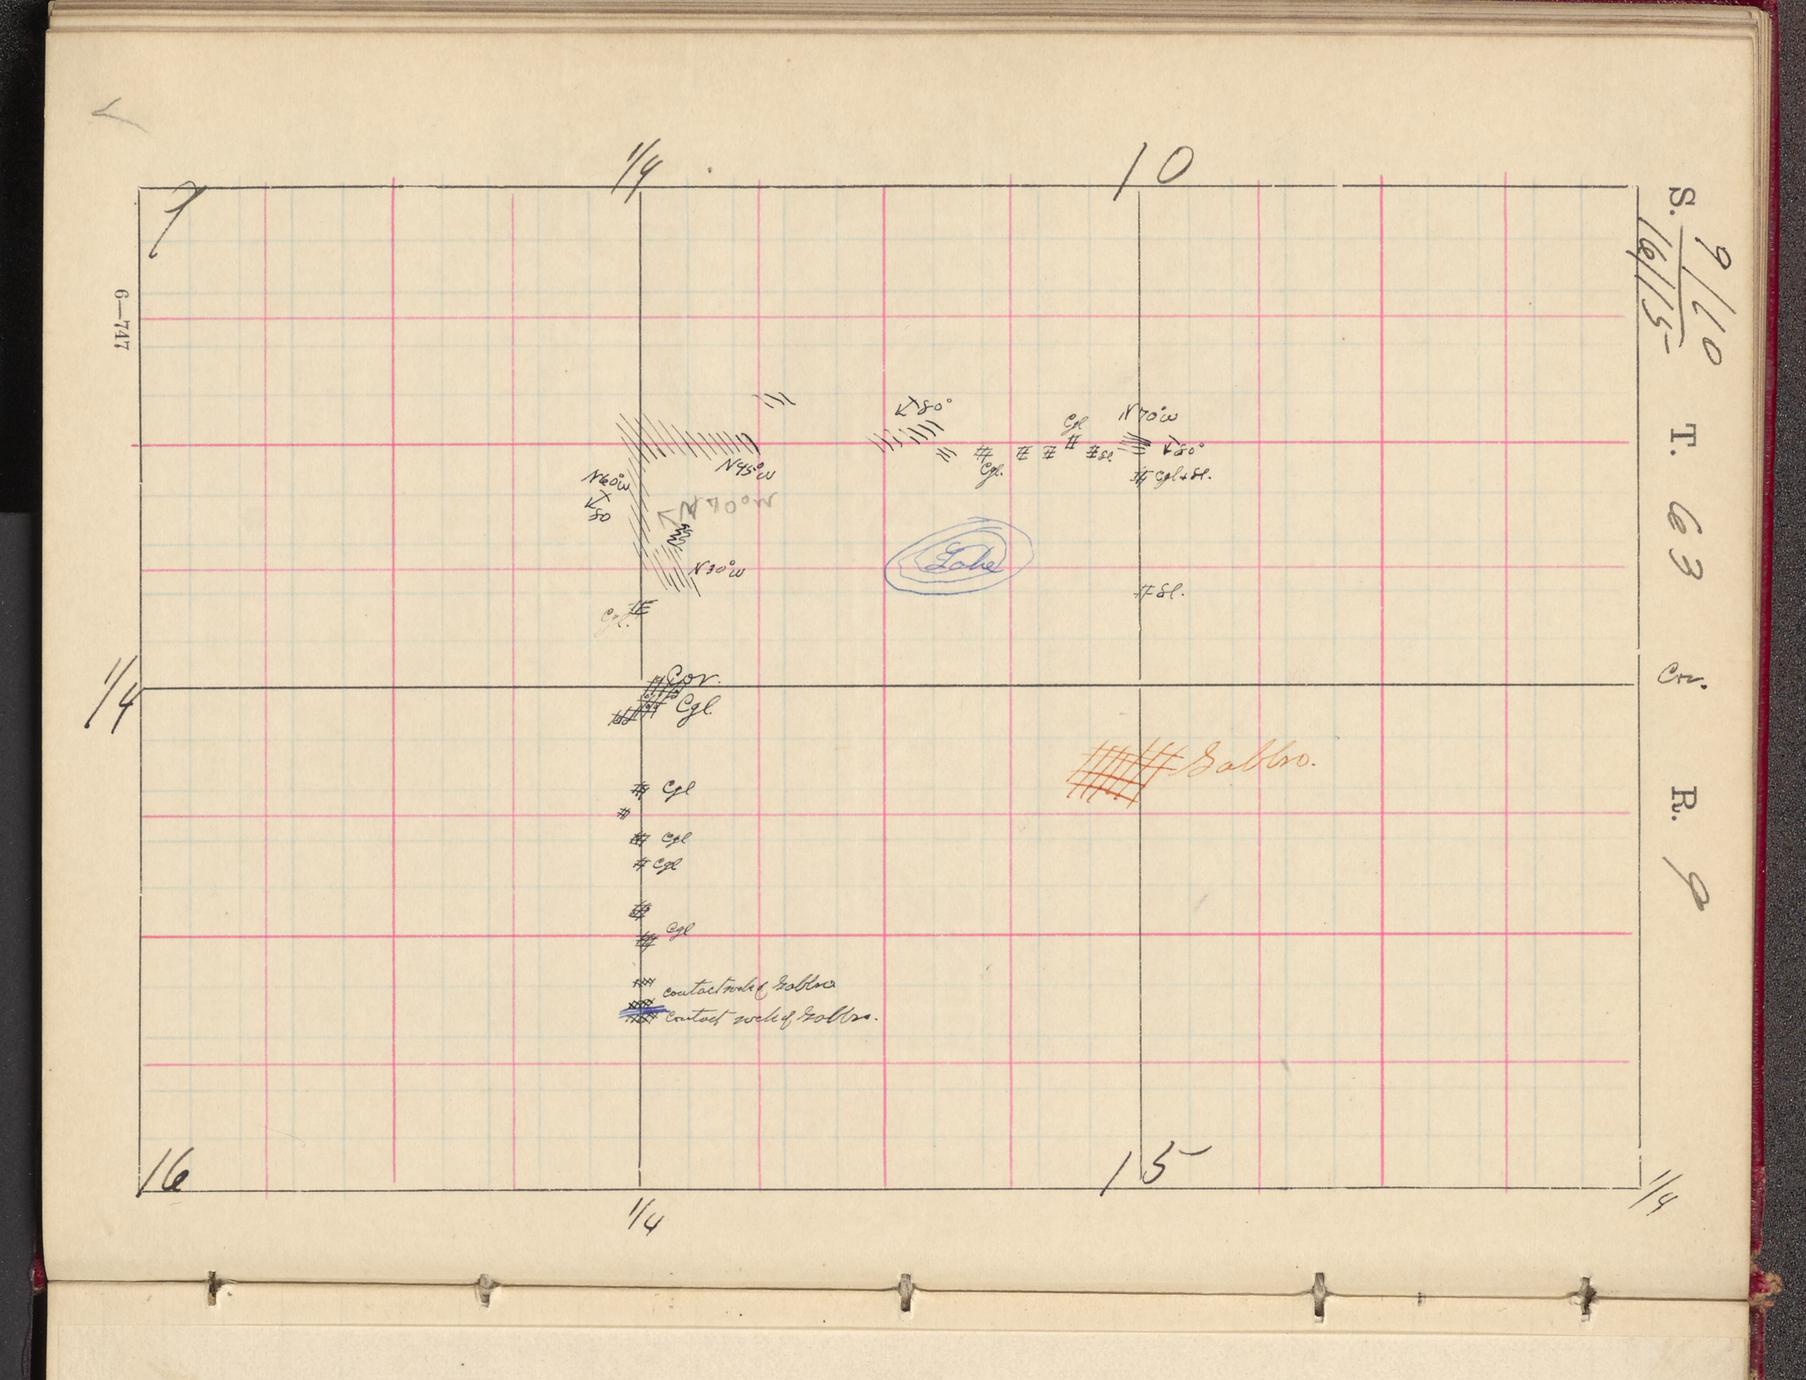 1/4
10
9
S. 9/10
16/15
T. 63
R. 9
6—747
80°
N 70° W
Cgl
N 45° W
80°
Sl.
N 60° W
Cgl.
Cgl + Sl.
80
Lake
N 30° W
Sl.
Cgl.
1/4
Cor.
Cor.
Cgl.
Gabbro.
Cgl
Cgl
Cgl
Cgl
contact rock of Gabbro
contact rock of Gabbro.
16
15
1/4
1/4